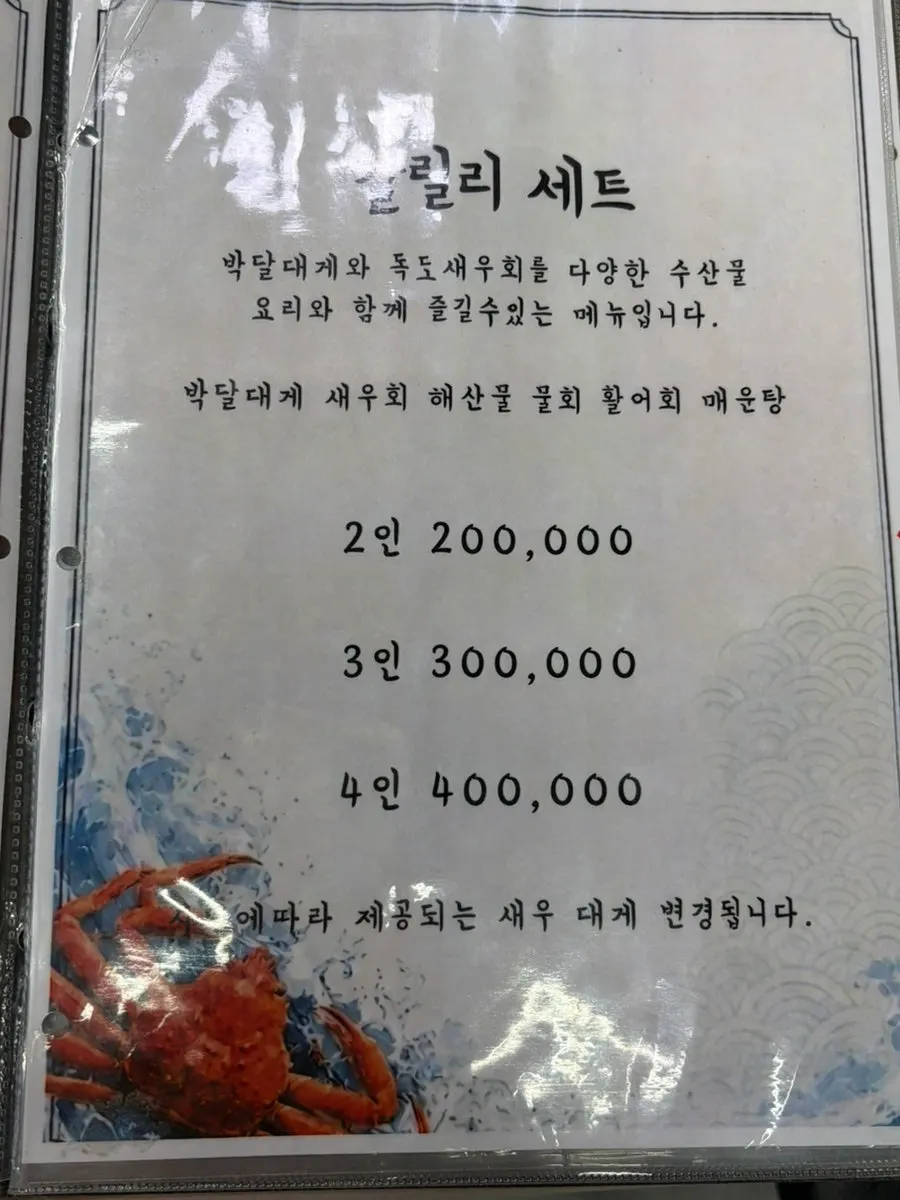 세트
박달대게와 독도새우회를 다양한 수산물
요리와 함께 즐길수있는 메뉴입니다.
박달대게 새우회 해산물 물회 활어회 매운탕
2인 200,000
3인 300,000
4인 400,000
제공되는 새우 대게 변경됩니다.